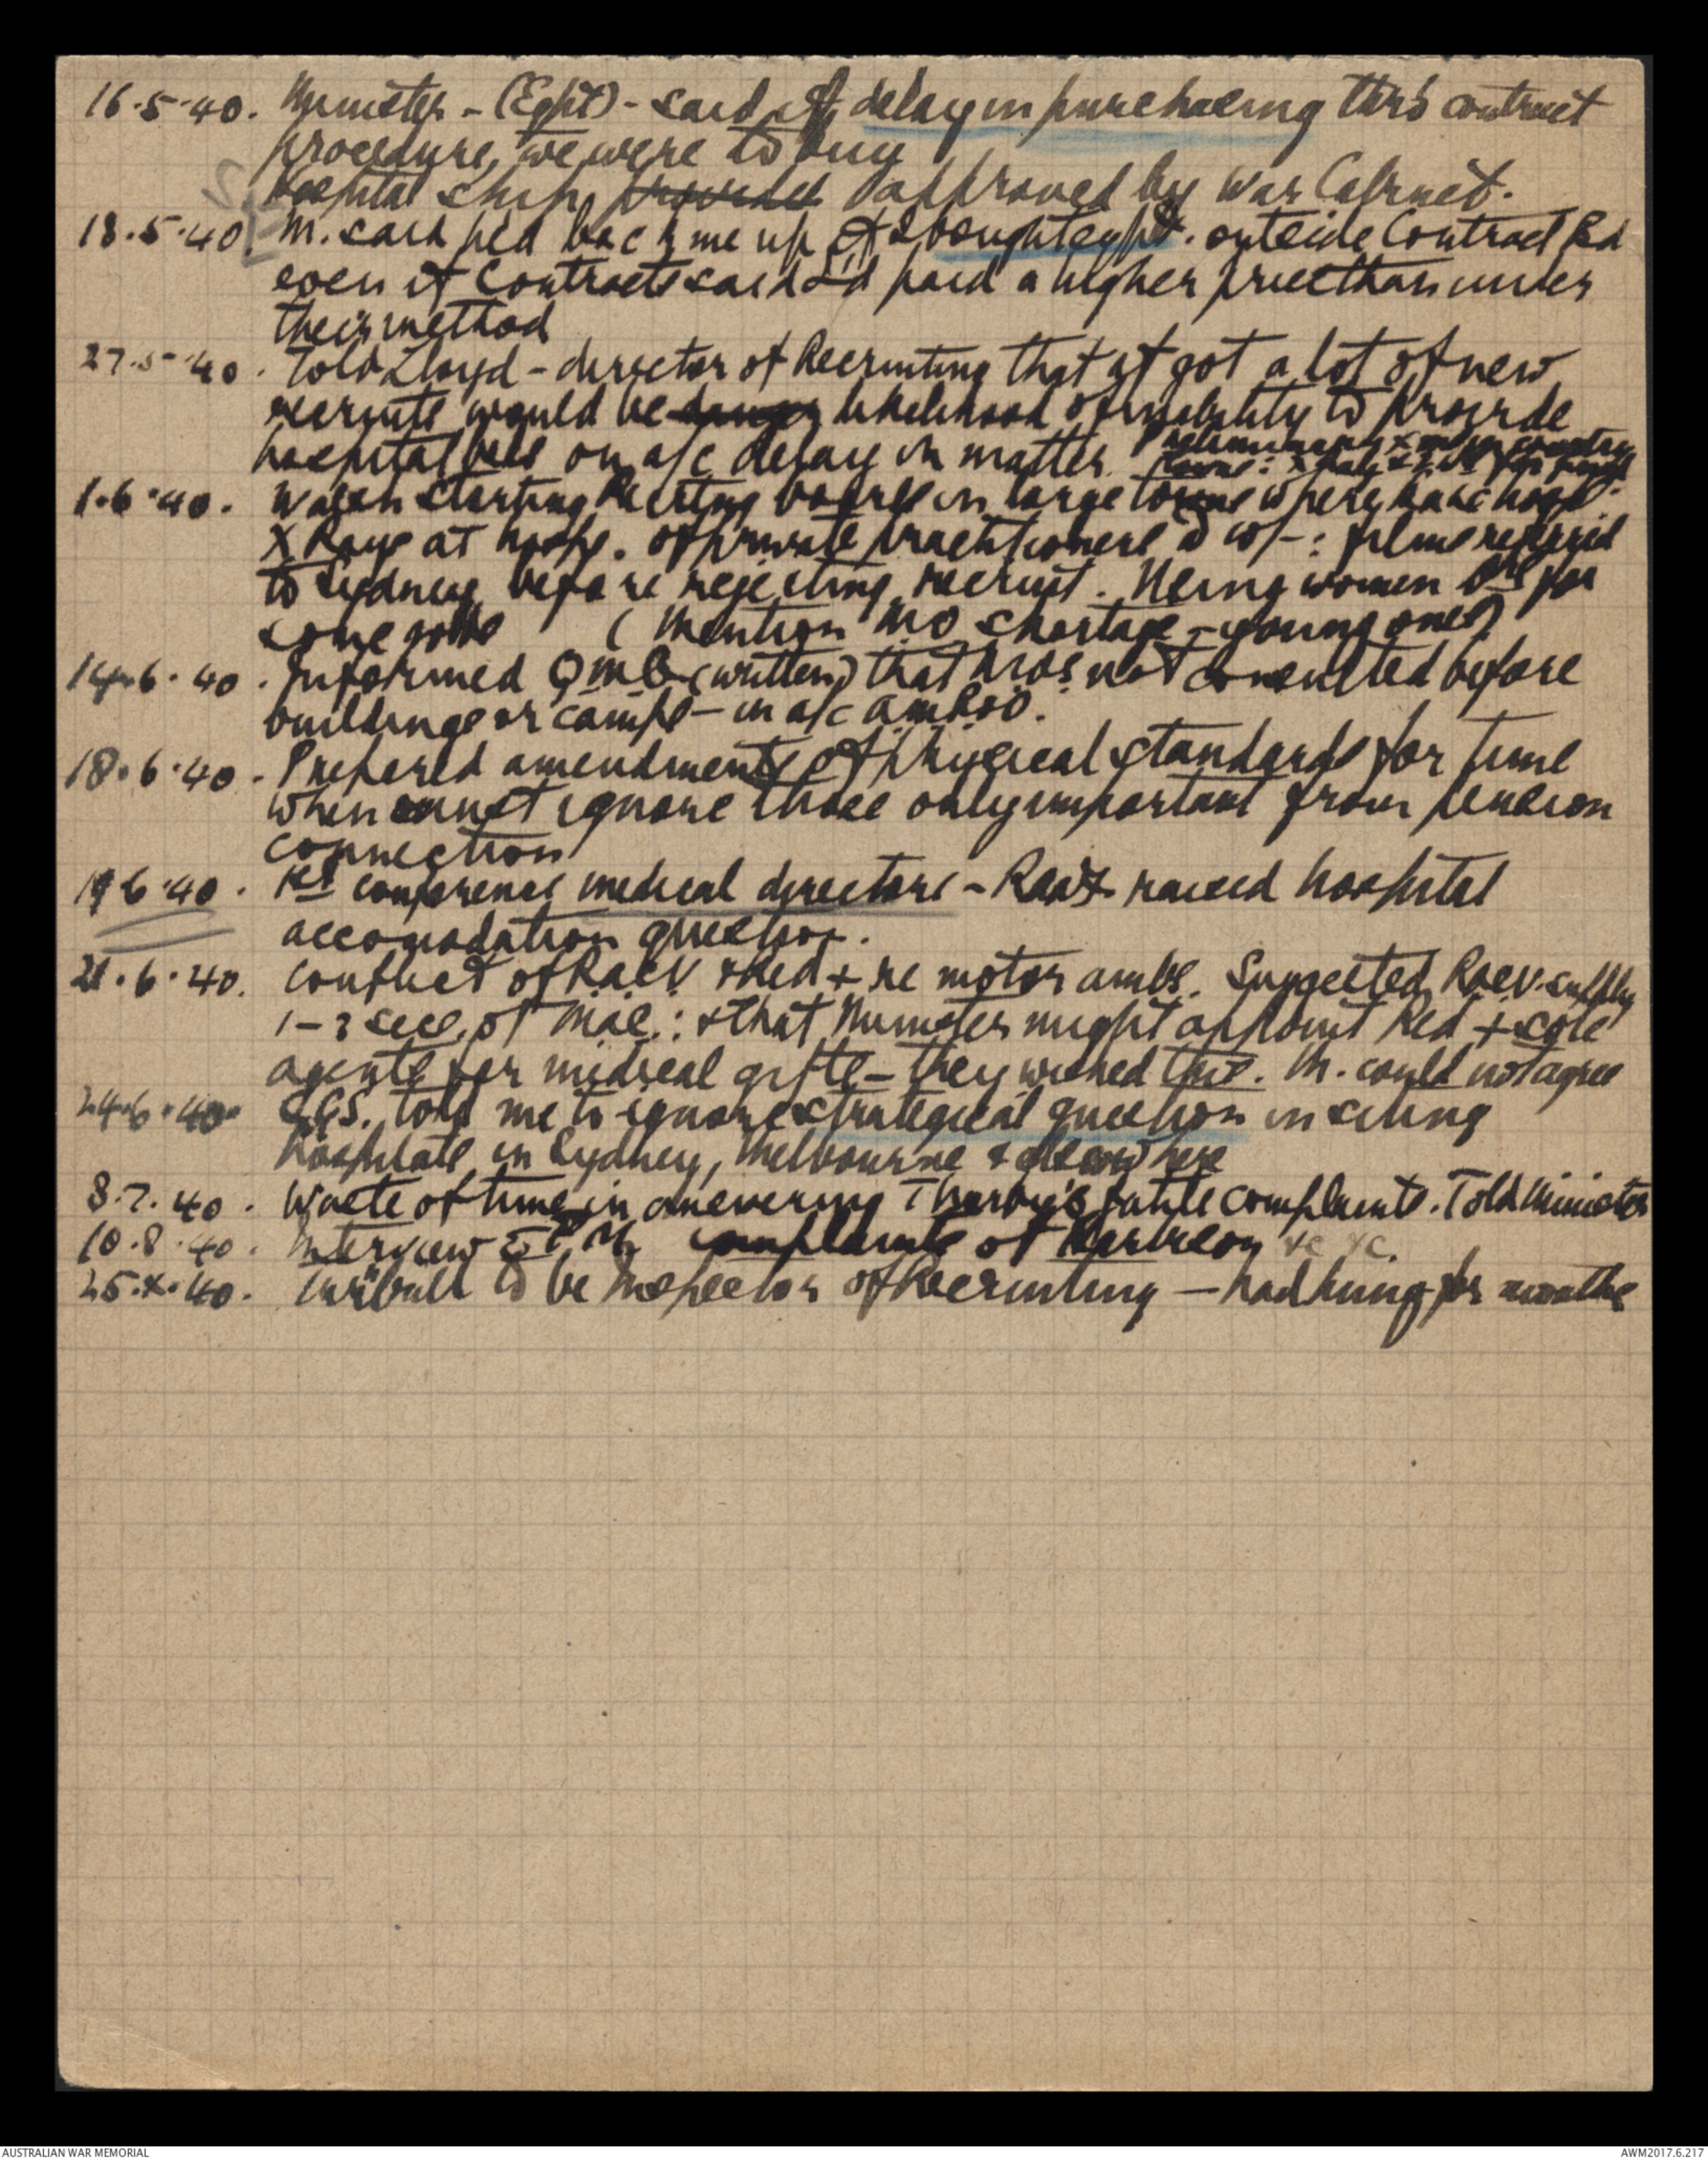 16.5.40. Minister - (Eqpt) - said if delay in purchasing thro contract
procedure, we were to buy
Hospital ship provided approved by War Cabinet.
18.5.40. M. said he'd back me up if I bought eqpt. outside Contract Bd
even if Contracts said I'd paid a higher price than under
their method
27.5.40. Told Lloyd - director of Recruiting that if got a lot of new
recruits would be danger likelihood of inability to provide
hospital beds on a/c delay in matter. Preliminary x in country
towns:
1.6.40. starting Recrtng boards in large towns where base hosp.
X Rays at hosp. or private practitioners @ 10/-: films referred
to Sydney before rejecting recruit. Using women Drs for
some jobs (Mention MO shortage - young ones)
14.6.40. Informed QMG (written) that not consulted before
buildings or camps - in a/c
18.6.40. Prepared amendments of physical standards for time
when must ignore those only important from pension
connection
19.6.40. 1st conference medical directors - raised hospital
accomodation question.
21.6.40. Conflict of RACV & Red + re motor ambs. Suggested RACV supply
1-2 secs. of MAC: & that Minister might appoint Red + sole
agents for medical gifts - they wished this. M. could not agree
24.6.40. C.G.S. told me to ignore strategical question in siting
hospitals in Sydney, Melbourne & elsewhere
8.7.40. Waste of time in answering Thorby's futile complaints. Told Minister
10.8.40. Interview complaints of Harrison &c &c.
25.X.40. to be Inspector of Recruiting - had hung for months
AUSTRALIAN WAR MEMORIAL
AWM2017.6.217